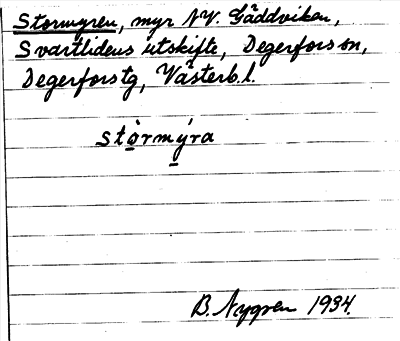 Stormyren, myr NV. Gäddviken,
Svartlidens utskifte, Degerfors sn,
Degerfors tg, Västerb. l.
stòrmýra
B. Nygren 1934.